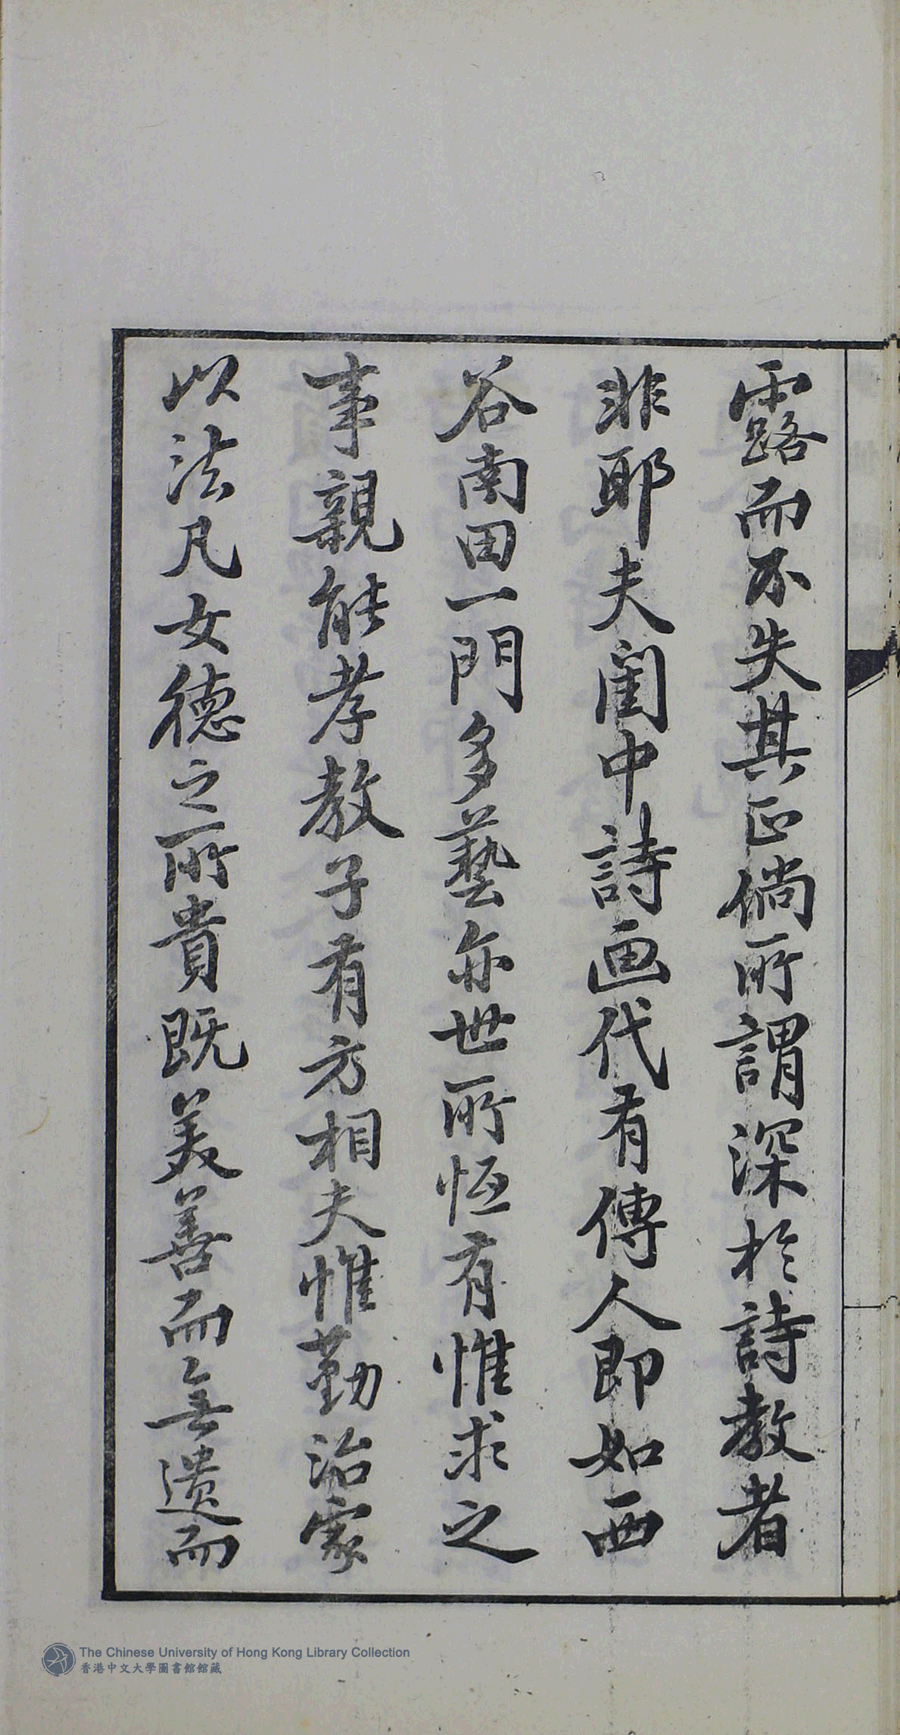 露而不失其正倘所謂深於詩教者
非耶夫閨中詩画代有傳人即如西
谷南田一門多藝亦世所恒有惟求之
事親能孝教子有方相夫惟勤治家
以法凡女德之所貴既美善而無遺而
The Chinese University of Hong Kong Library Collection
香港中文大學圖書館館藏